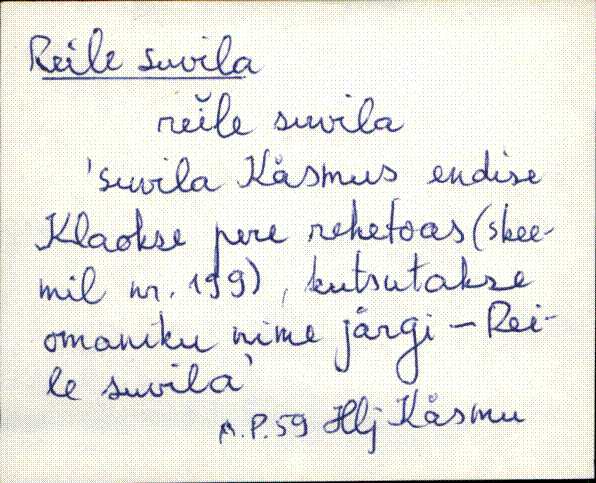 Reile suvila
reĭle suvila
'suvila Käsmus endise
Klaokse pere rehetoas (skee-
mil nr. 199), kutsutakse
omaniku nime järgi – Rei-
le suvila'
A.P. 59 Hlj Käsmu